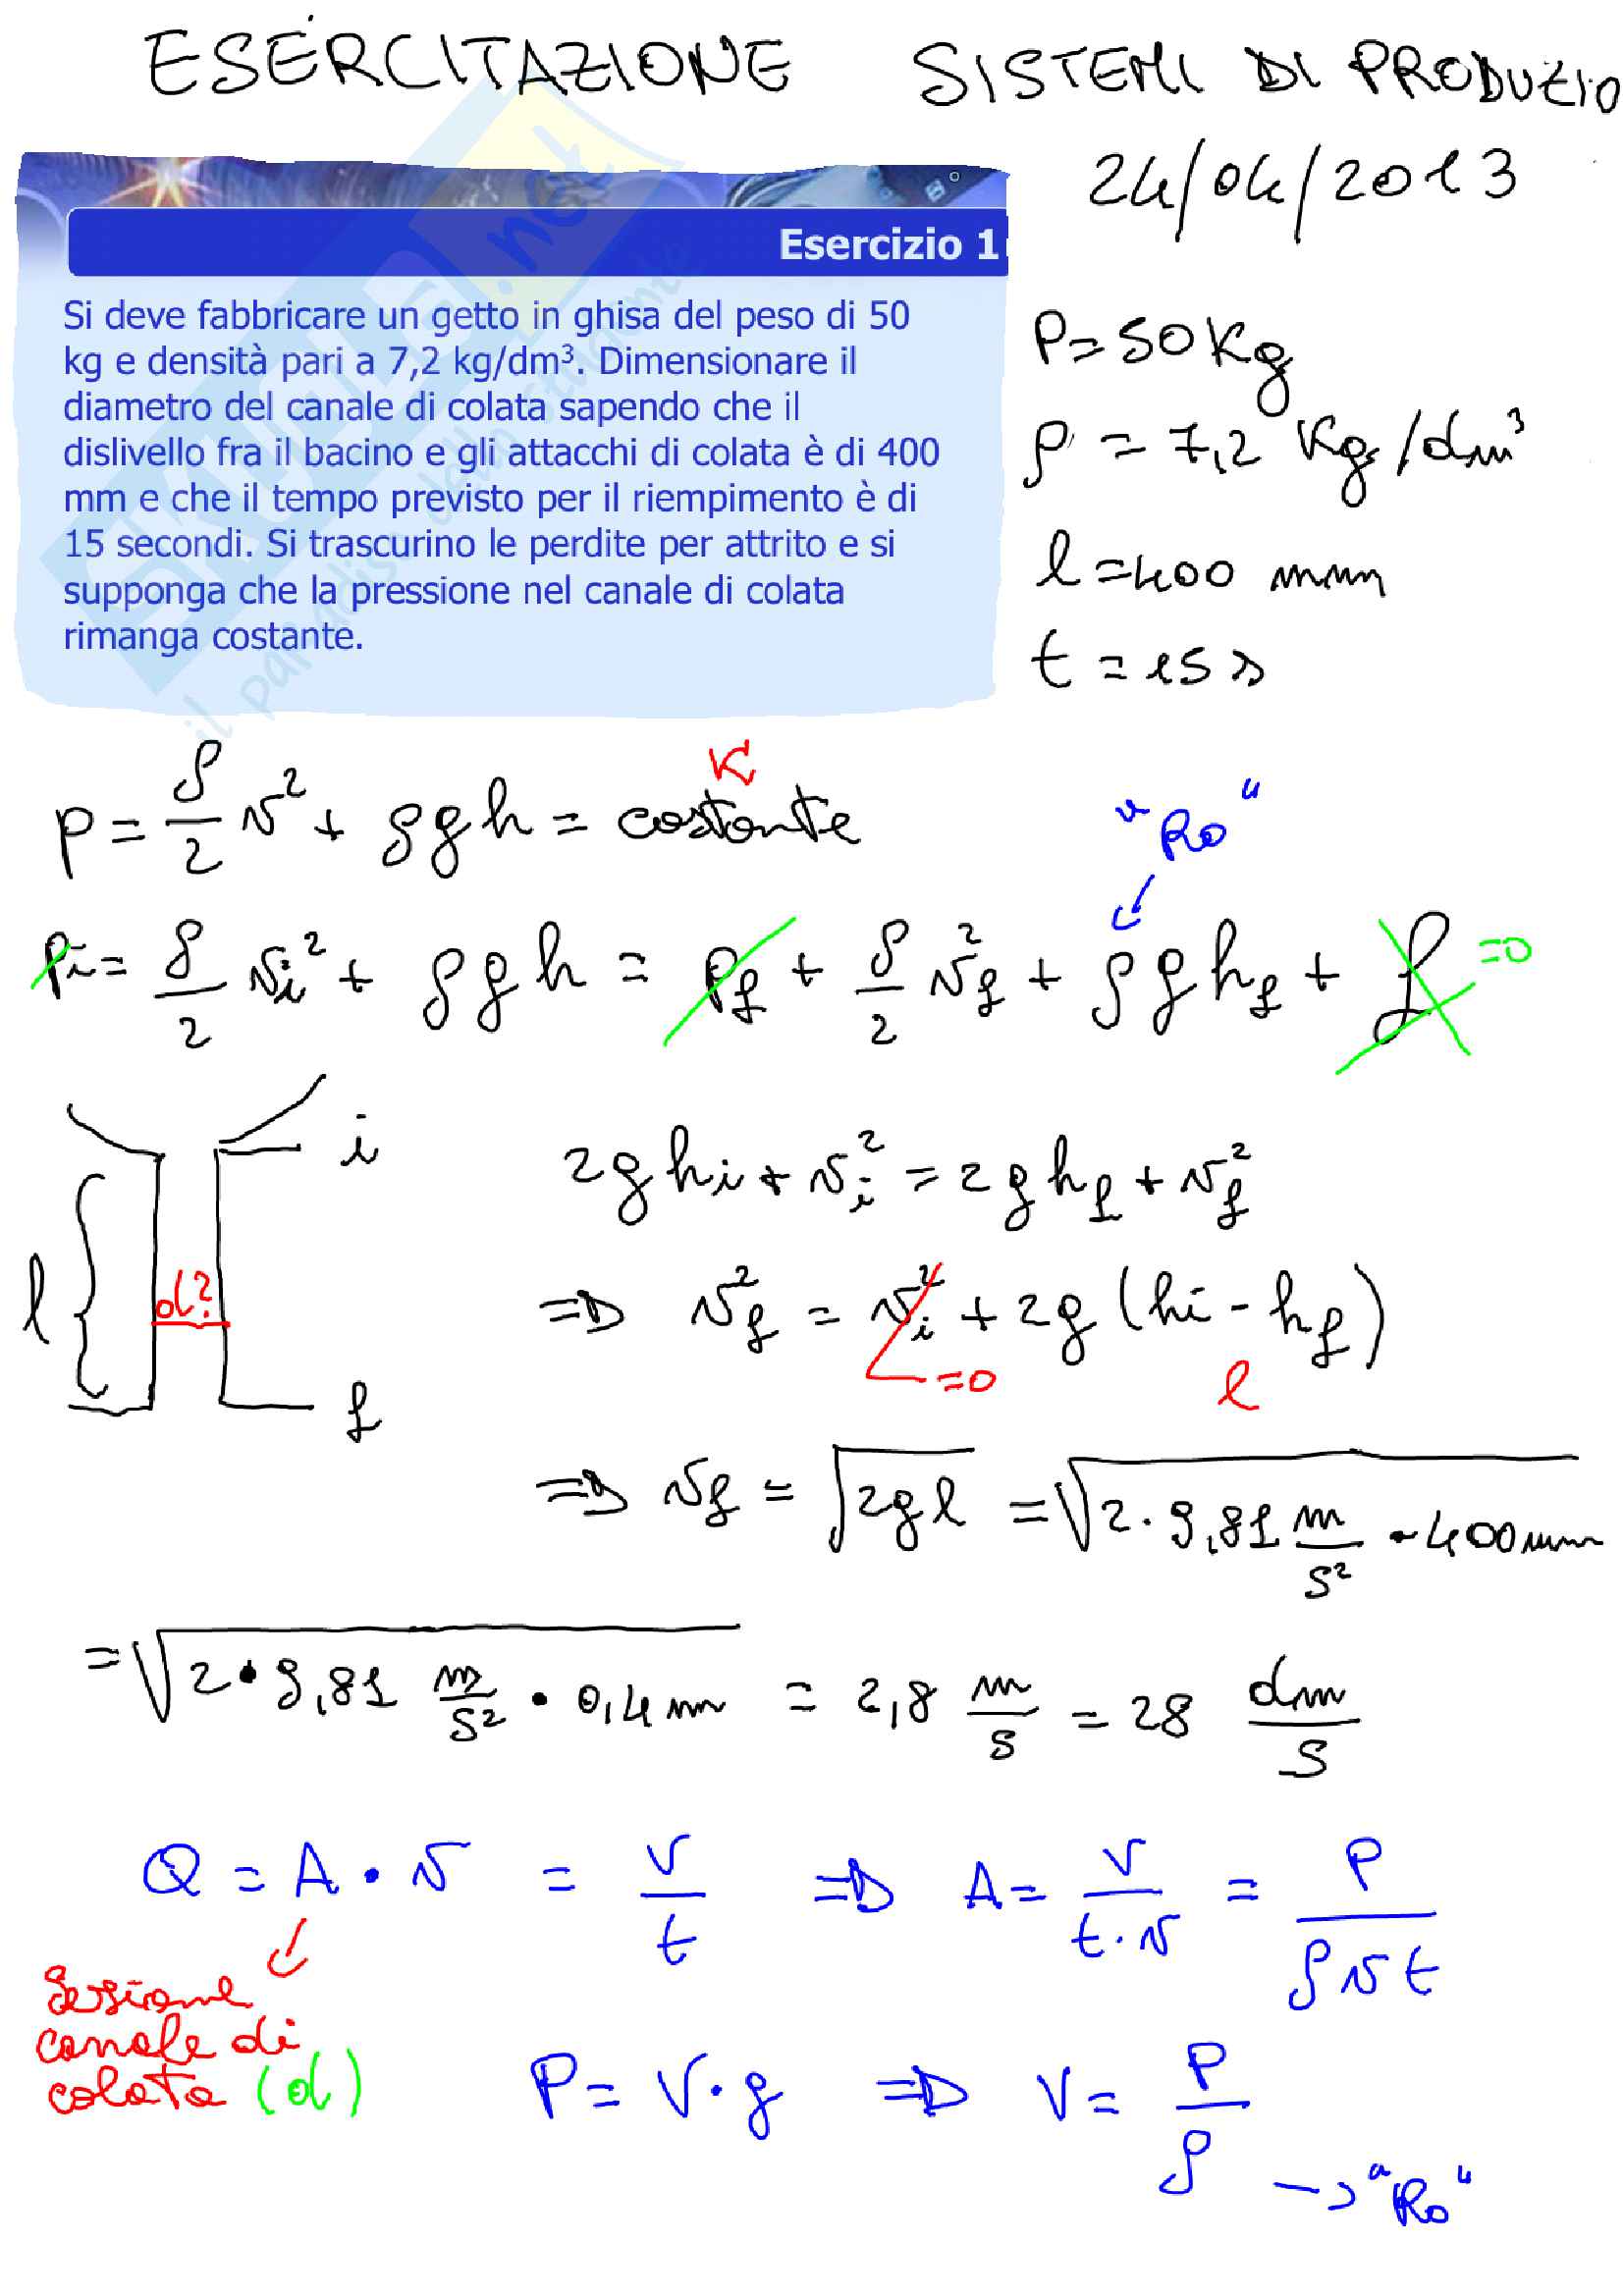 ESERCITAZIONE SISTEMI DI PRODUZIO
24/04/2013
Esercizio 1
Si deve fabbricare un getto in ghisa del peso di 50
kg e densità pari a 7,2 kg/dm³. Dimensionare il
diametro del canale di colata sapendo che il
dislivello fra il bacino e gli attacchi di colata è di 400
mm e che il tempo previsto per il riempimento è di
15 secondi. Si trascurino le perdite per attrito e si
supponga che la pressione nel canale di colata
rimanga costante.
P = 50 Kg
ρ = 7,2 Kg/dm³
l = 400 mm
t = 15 s
K
p = ρ/2 v² + ρgh = costante
"Ro"
pi = ρ/2 vi² + ρgh = pf + ρ/2 vf² + ρghf + f =0
i
l
d?
f
2ghi + vi² = 2ghf + vf²
=> vf² = vi² + 2g (hi - hf)
=0 l
=> vf = √2gl = √2 · 9,81 m/s² · 400 mm
= √2 · 9,81 m/s² · 0,4 m = 2,8 m/s = 28 dm/s
Q = A · v = V/t => A = V/t·v = P/ρvt
Sezione
canale di
colata (d)
P = V · ρ => V = P/ρ -> "Ro"
SKUOLA.net
il paradiso dello studente